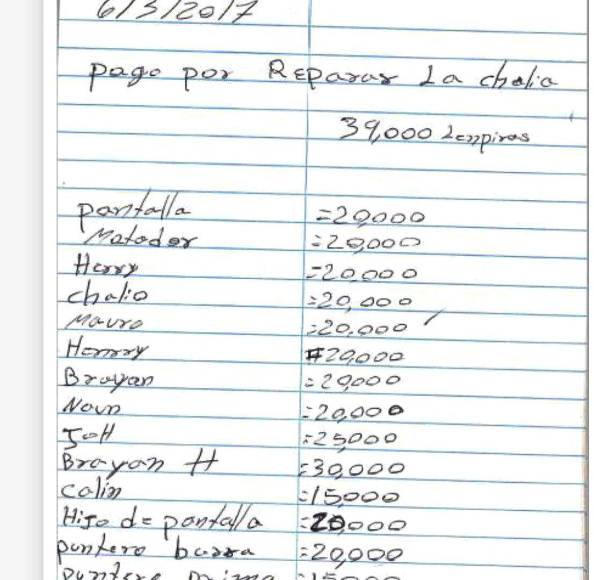 6/3/2017
pago por REparar La chalia
39,000 Lempiras
pantalla =20,000
Matador =20,000
Henry =20,000
chalio =20,000
Mauro =20,000
Henrry #20,000
Brayan =20,000
Noun =20,000
JOH =25,000
Brayan H =30,000
calin =15,000
Hijo de pantalla =20,000
puntero barra =20,000
puntero =15000